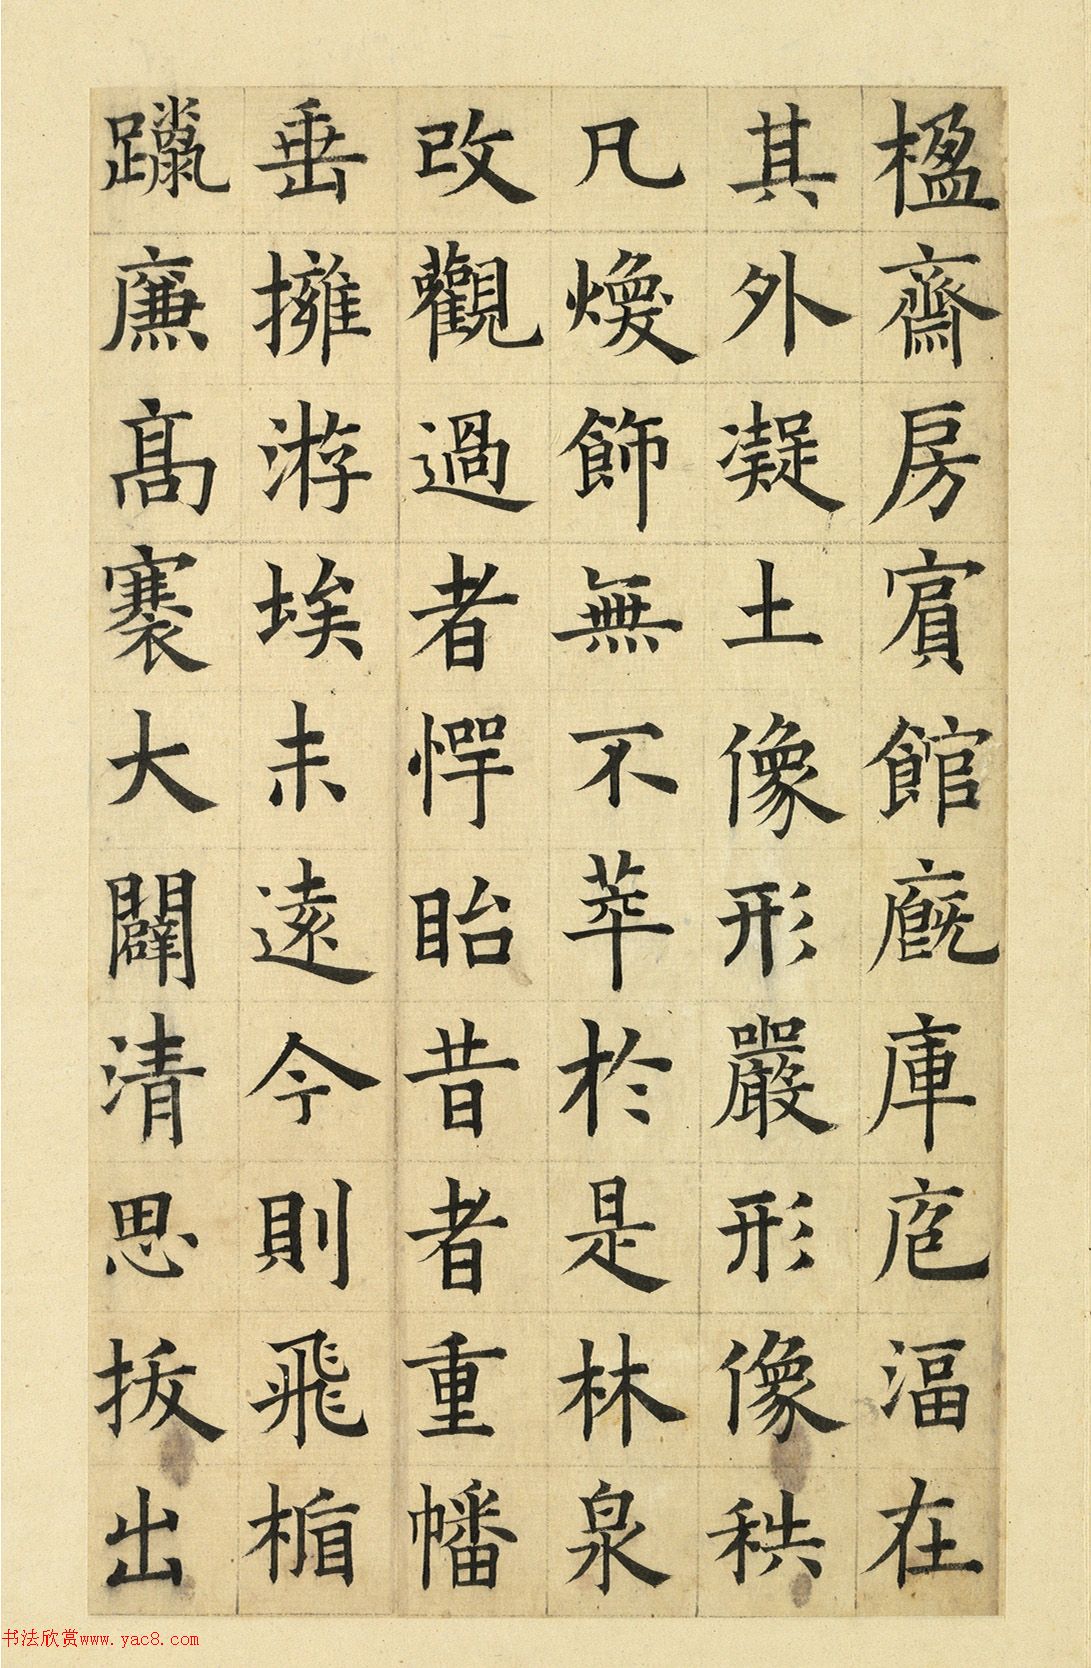 楹齋房賔館廐庫庖湢在
其外凝土像形嚴形像秩
凡煥飾無不萃於是林泉
改觀過者愕眙昔者重幡
垂擁游埃未遠今則飛楯
躐廉高褰大闢清思拔出
书法欣赏www.yac8.com